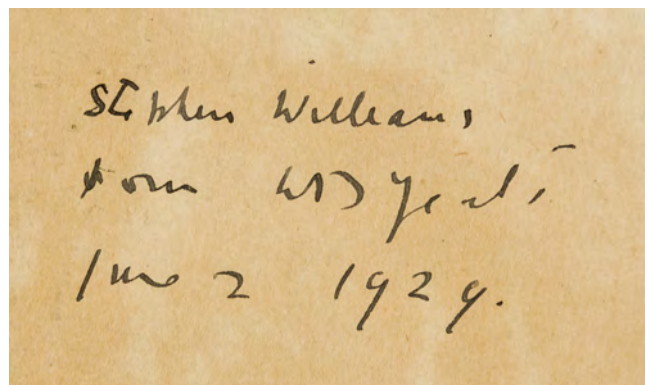 Stephen Williams
from WB Yeats
June 2 1929.